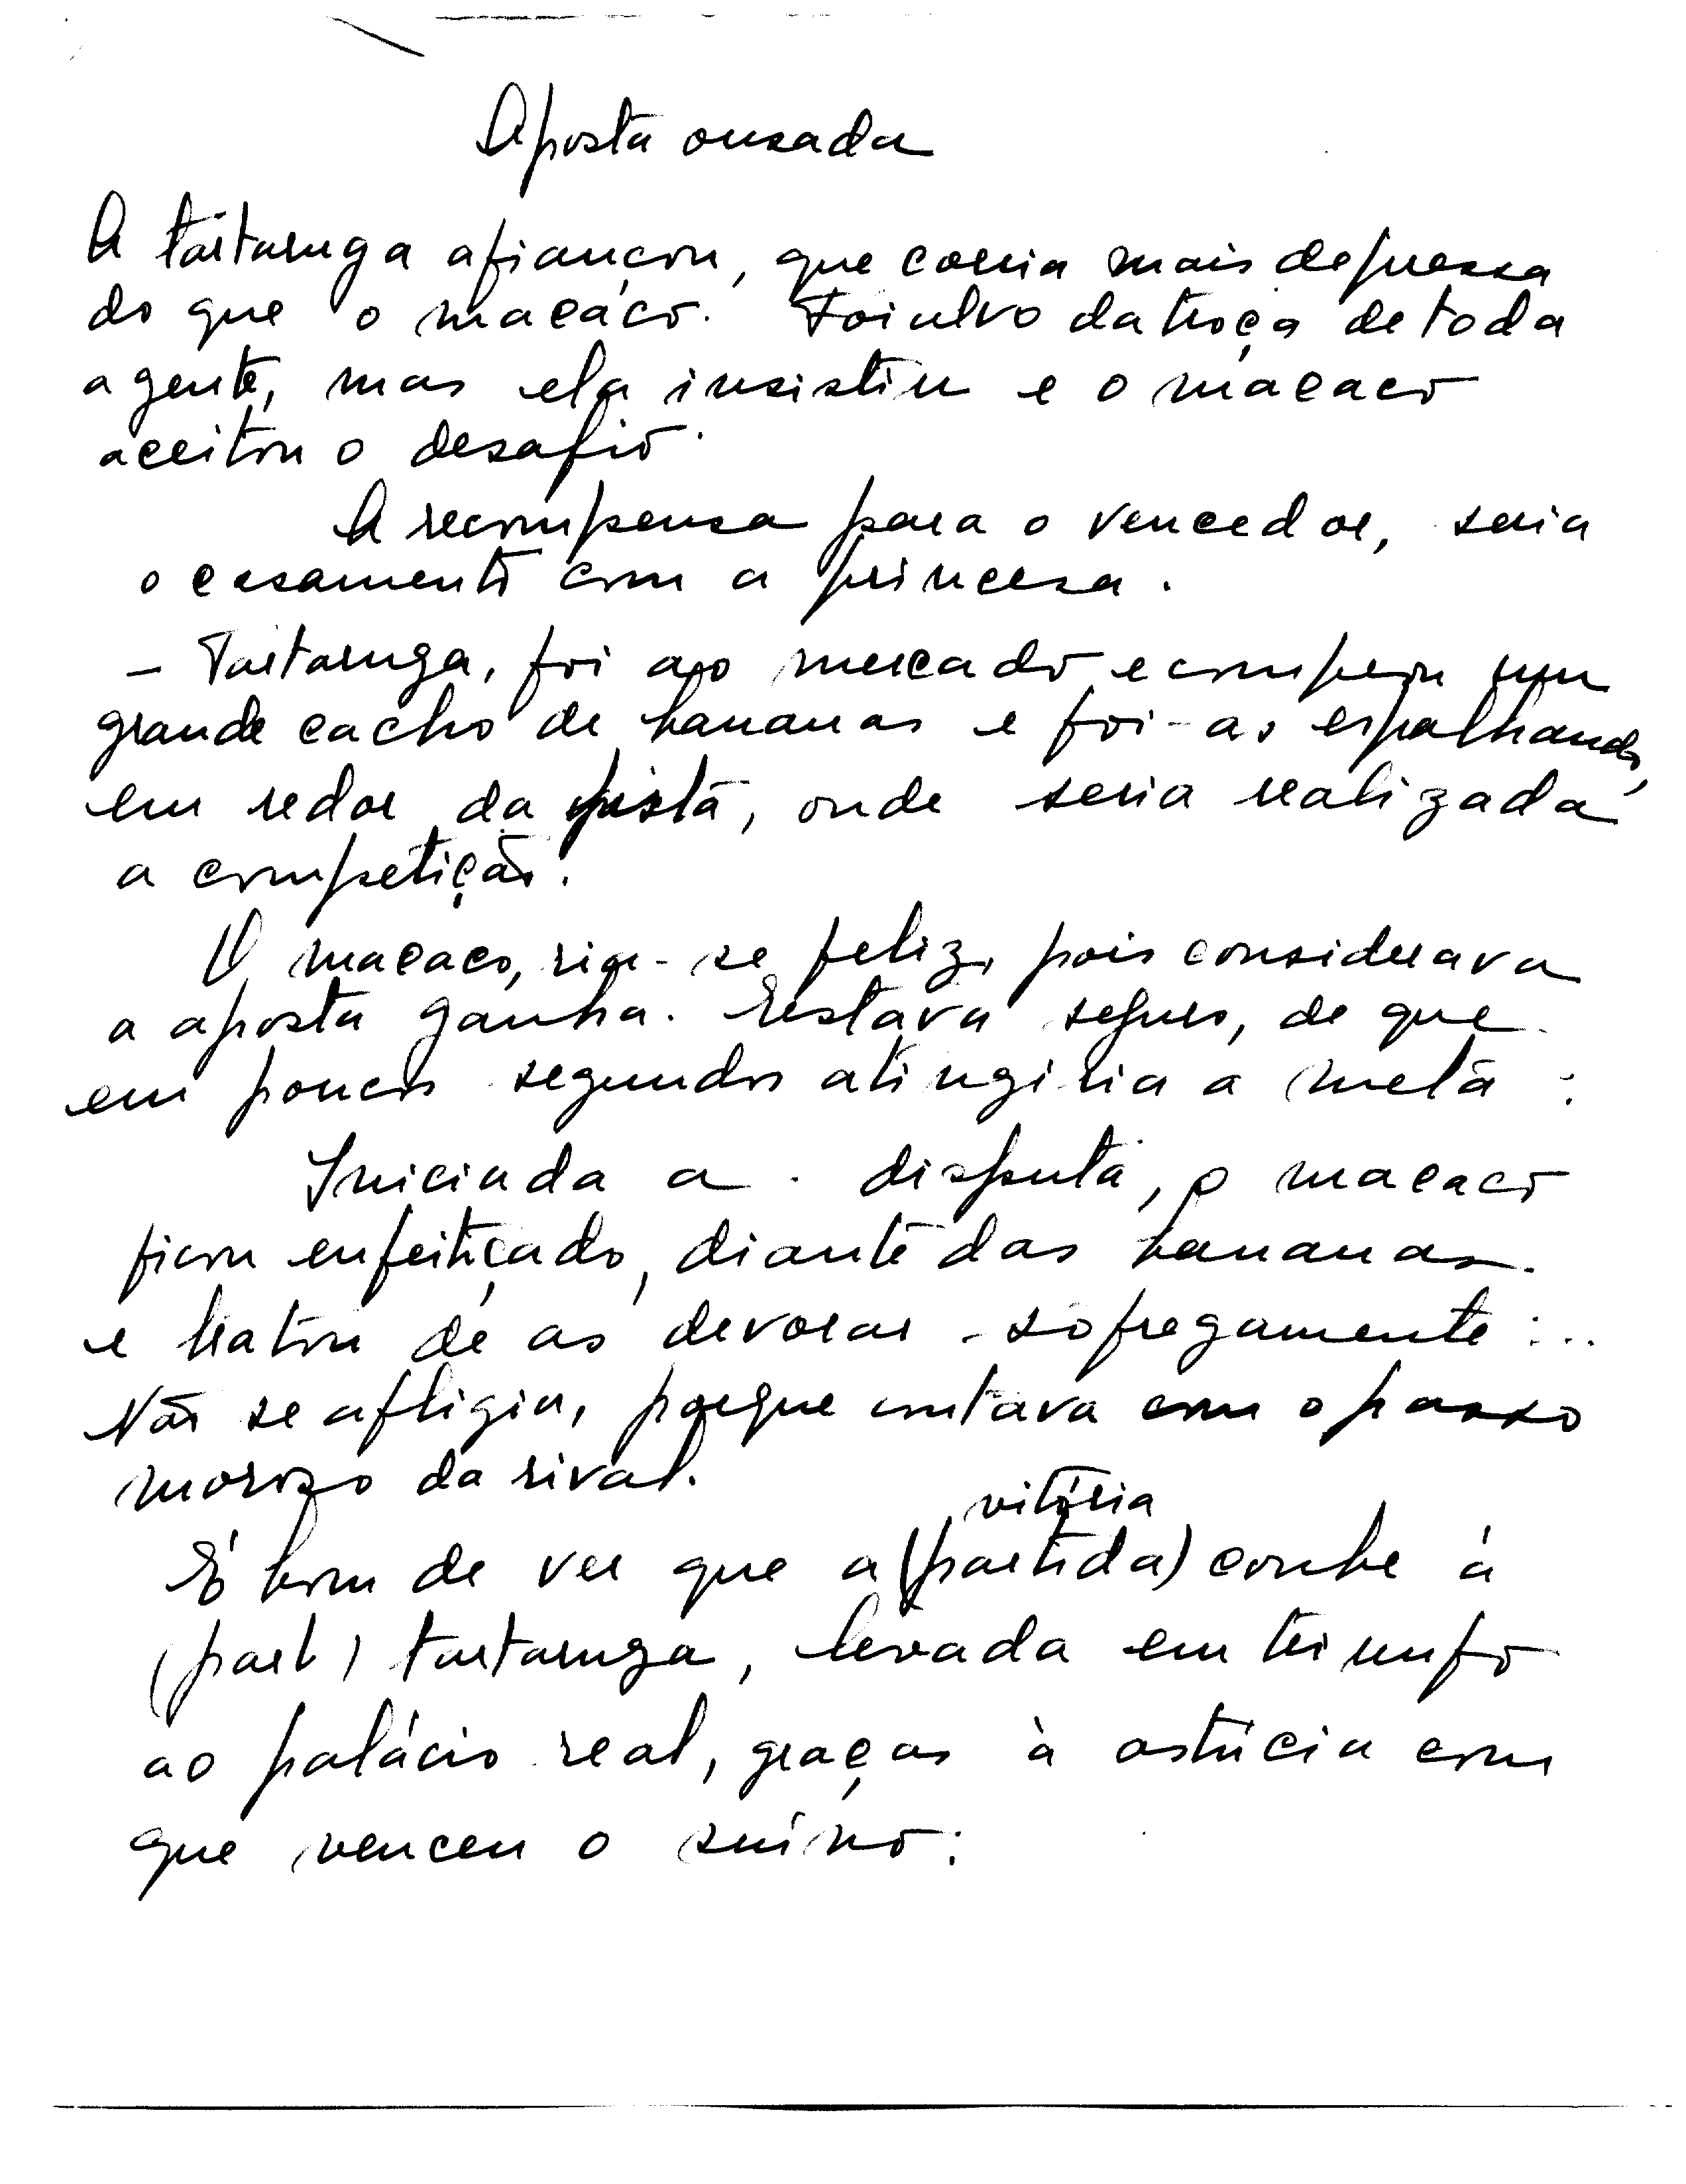 Aposta ousada
A tartaruga afiançou, que corria mais depressa
do que o macaco. Foi alvo da troça de toda
a gente, mas ela insistiu e o macaco
aceitou o desafio.
A recompensa para o vencedor, seria
o casamento com a princesa.
- Tartaruga, foi ao mercado e comprou um
grande cacho de bananas e foi-as espalhando,
em redor da pista, onde seria realizada
a competição.
O macaco, ria-se feliz, pois considerava
a aposta ganha. Estava seguro, de que
em poucos segundos atingiria a meta.
Iniciada a disputa, o macaco
ficou enfeitiçado, diante das bananas
e tratou de as devorar sofregamente...
Não se afligia, porque contava com o passo
moroso da rival.
vitória
É bom de ver que a (partida) coube à
(part) tartaruga, levada em triunfo
ao palácio real, graças à astúcia com
que venceu o suíno.